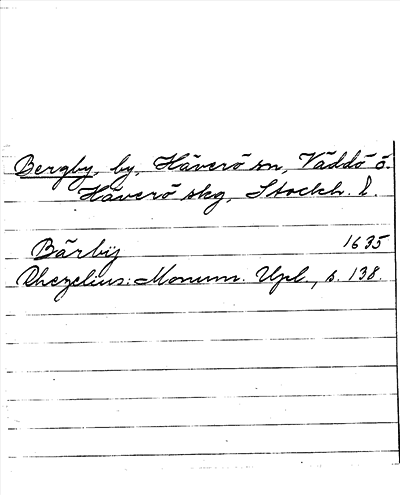 Bergby, by, Häverö sn, Väddö ö.
Häverö skg, Stockh. l.
Bärbÿ 1635
Rhezelius: Monum. Upl., s. 138.